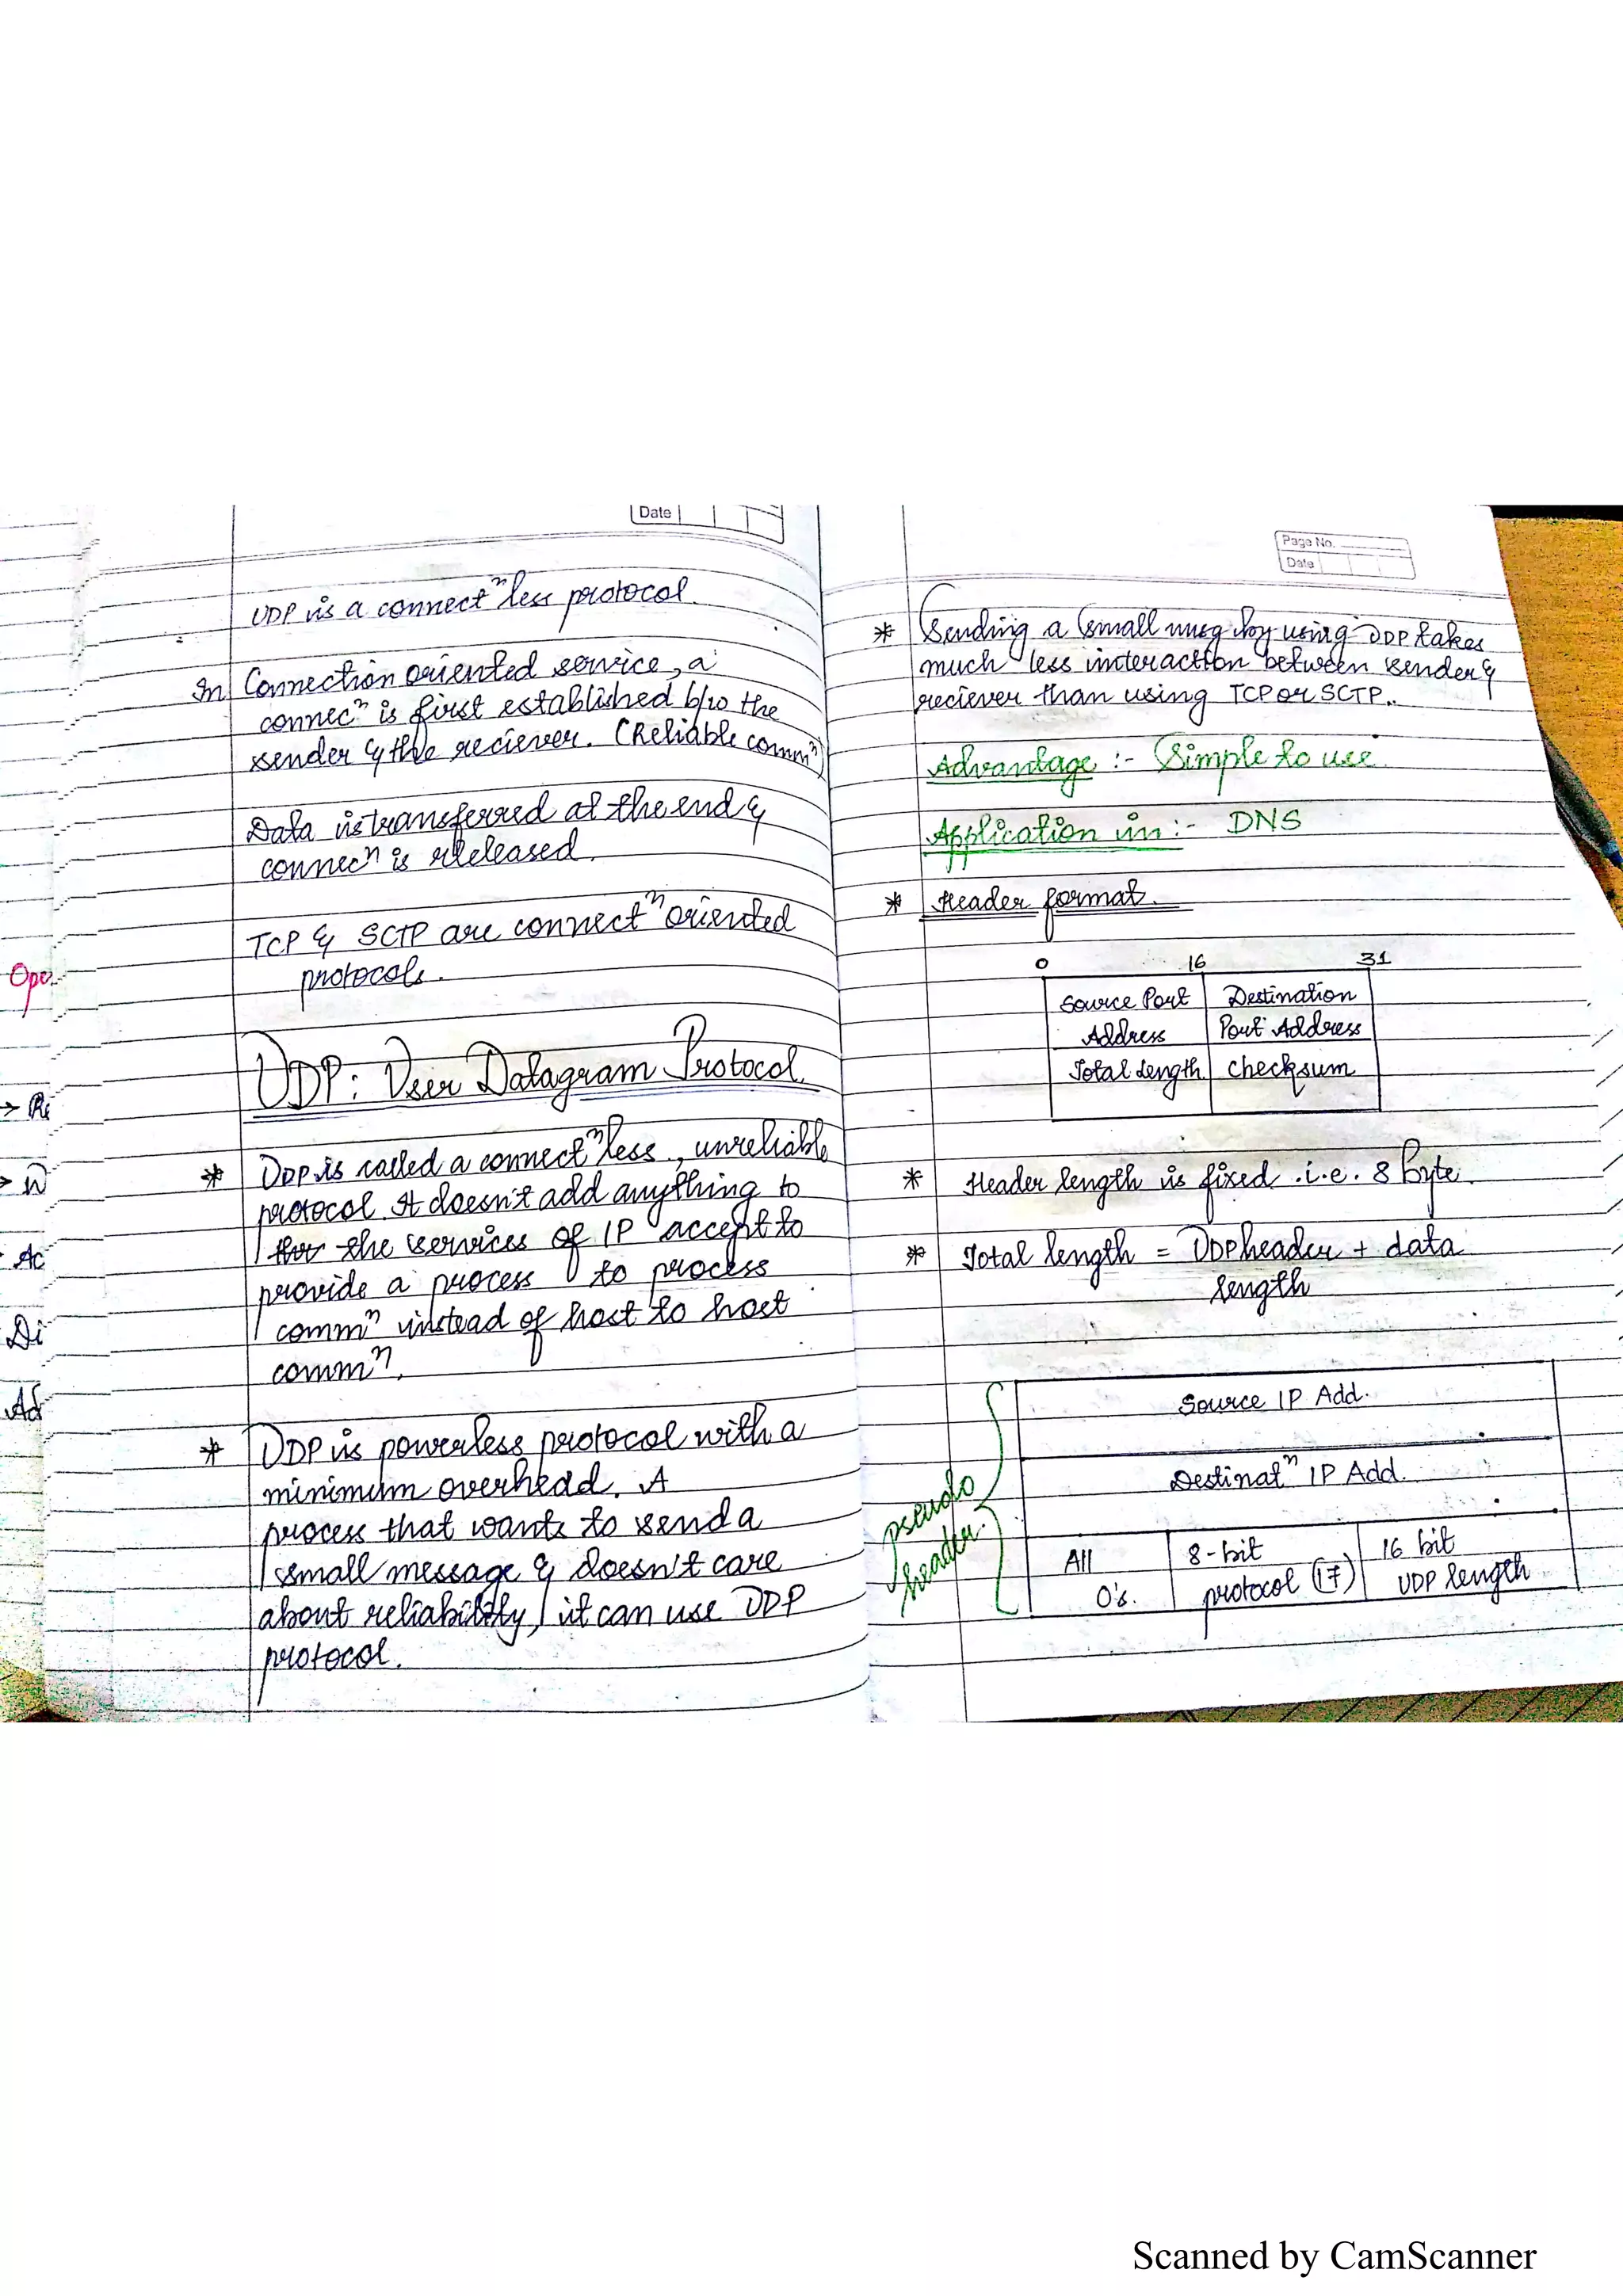 Date
UDP is a connectⁿless protocol.
In Connection oriented service, a
connecⁿ is first established b/w the
sender & the reciever. (Reliable commⁿ)
Data is transferred at the end &
connecⁿ is released.
TCP & SCTP are connectⁿ oriented
protocols.
UDP: User Datagram Protocol.
* UDP is called a connectⁿless, unreliable
protocol. It doesn't add anything to
the services of IP accept to
provide a process to process
commⁿ instead of host to host
commⁿ.
* UDP is powerless protocol with a
minimum overhead. A
process that wants to send a
small message & doesn't care
about reliability, it can use UDP
protocol.
Ope
→ Re
→ W
Ac
Di
Ad
Page No.
Date
* Sending a small msg by using UDP takes
much less interaction between sender &
reciever than using TCP or SCTP.
Advantage :- Simple to use
Application in :- DNS
* Header format.
0 16 31
Source Port Destination
Address Port Address
Total Length checksum
* Header length is fixed i.e. 8 byte.
* Total length = UDP header + data
length
Source IP Add.
Destinatⁿ IP Add.
pseudo
header.
All 8-bit 16 bit
0's. protocol (17) UDP length
Scanned by CamScanner